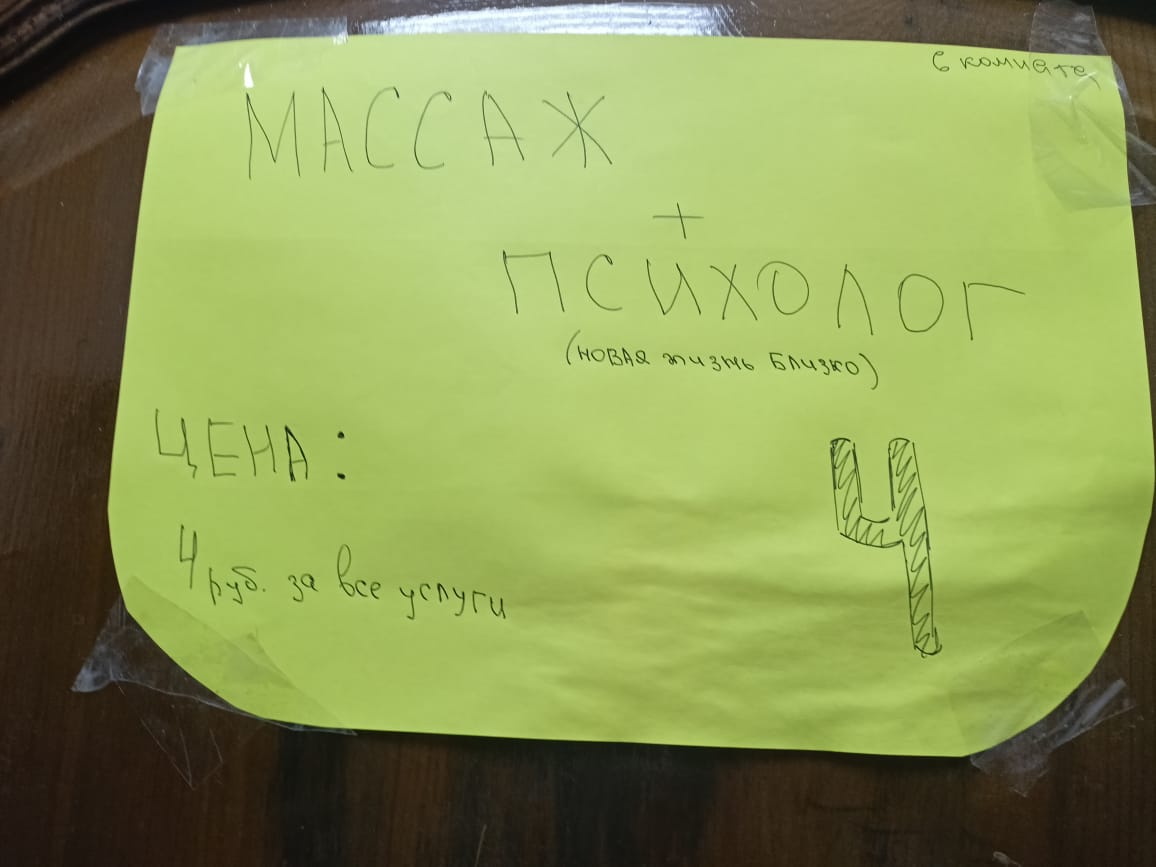 в комнате
МАССАЖ
+
ПСИХОЛОГ
(НОВАЯ жизнь БЛИЗКО)
ЦЕНА:
4
4 руб. за все услуги